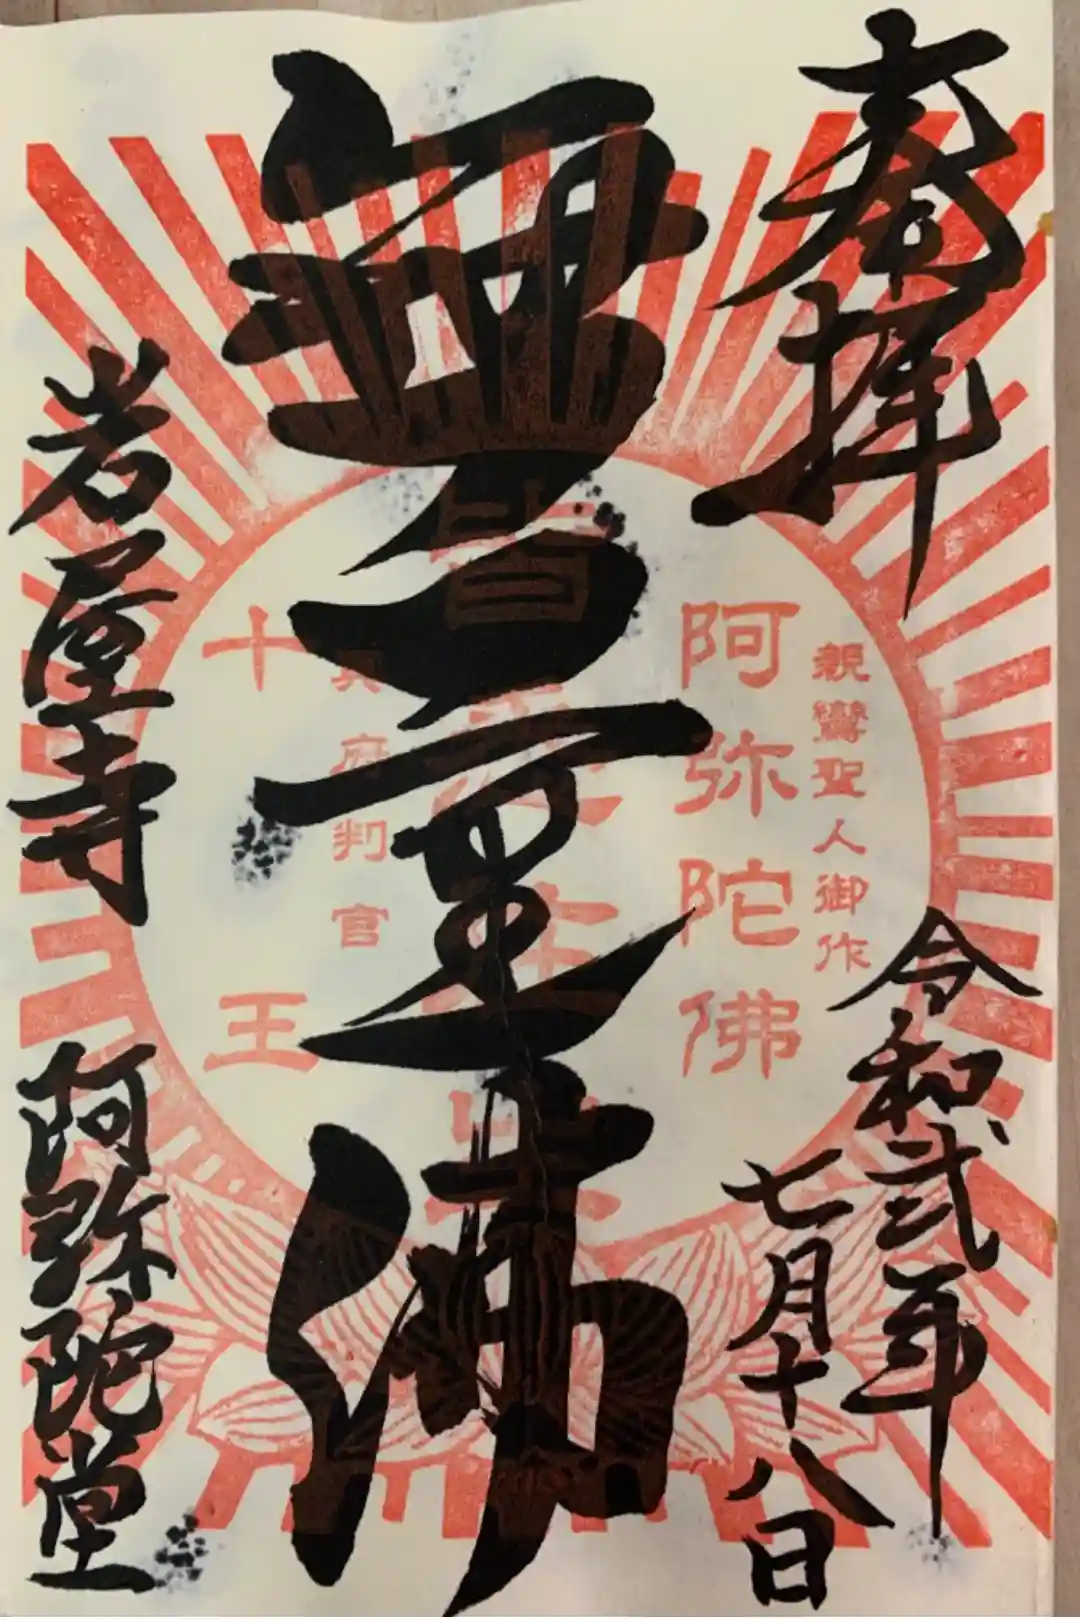 奉拝
令和弐年
七月十八日
親鸞聖人御作
阿弥陀佛
無量佛
冥府判官
十王
岩屋寺
阿弥陀堂